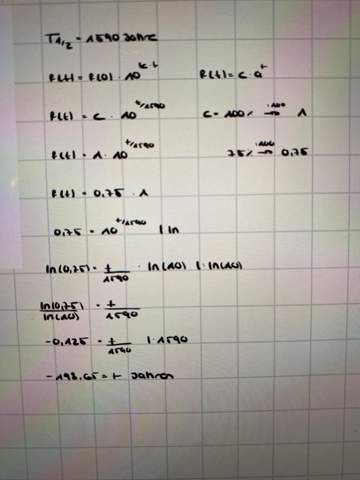 T1/2 = 1590 Jahre
R(t) = R(0) · 10^k·t R(t) = c · a^t
R(t) = c · 10^t/1590 c = 100% :100→ 1
R(t) = 1 · 10^t/1590 75% :100→ 0,75
R(t) = 0,75 · 1
0,75 = 10^t/1590 | ln
ln(0,75) = t/1590 · ln(10) | : ln(10)
ln(0,75)/ln(10) = t/1590
-0,125 = t/1590 | · 1590
-198,65 = t Jahren